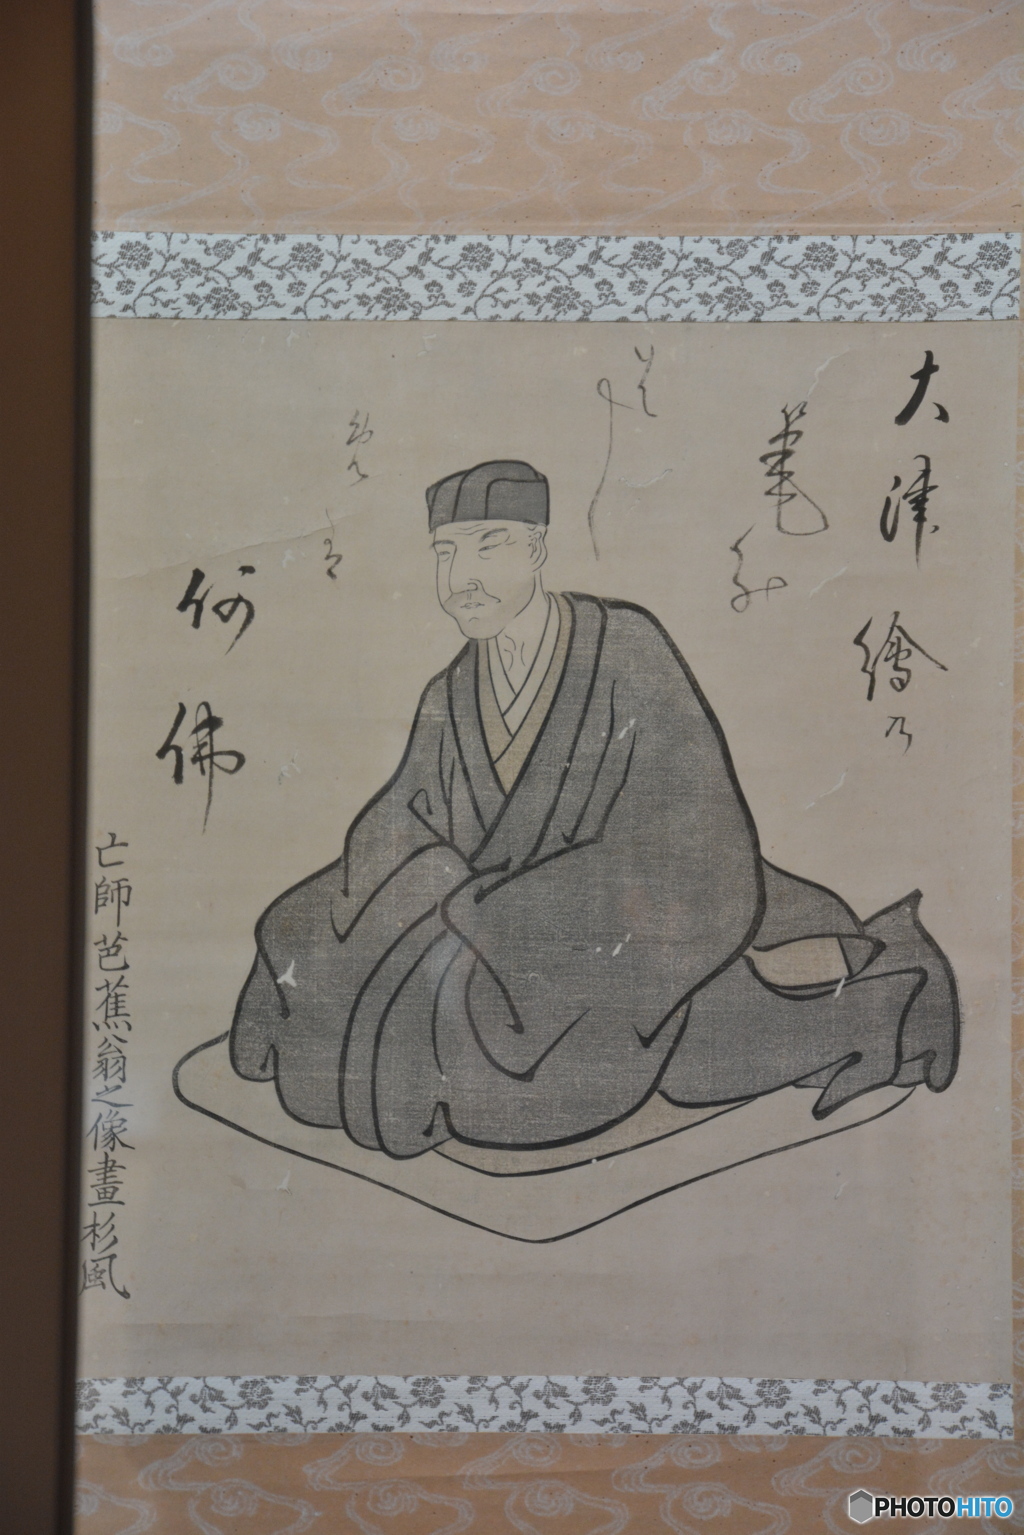 大津繪乃
筆能
者し
免盤
何佛
亡師芭蕉翁之像畫杉風
PHOTOHITO